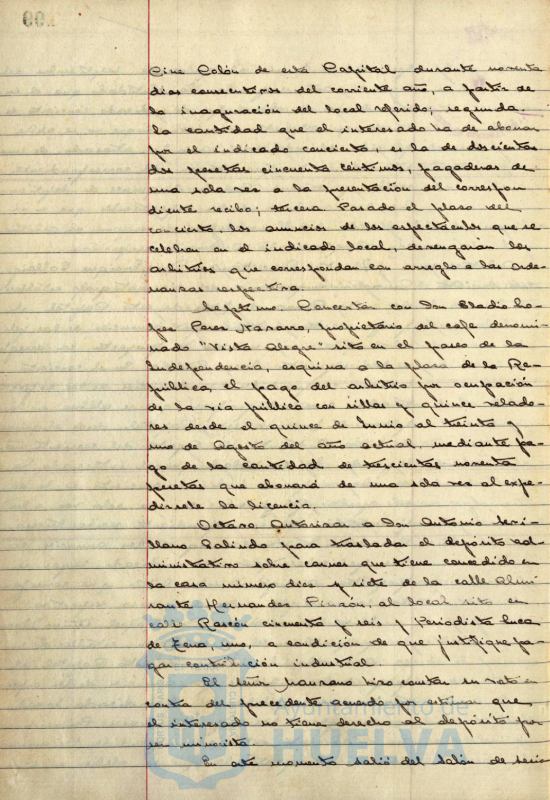 Cine Colón de esta Capital durante noventa
dias consecutivos del corriente año, a partir de
la inaguración del local referido; segunda.
la cantidad que el interesado ha de abonar
por el indicado concierto, es la de doscientas
dos pesetas cincuenta céntimos, pagaderas de
una sola vez a la presentación del correspon
diente recibo; tercera. Pasado el plazo del
concierto, los anuncios de los espectáculos que se
celebren en el indicado local, devengarán los
arbitrios que correspondan con arreglo a las Orde-
nanzas respectiva.
Septimo. Concertar con Don Eladio Lo-
pez Perez Navarro, propietario del cafe denomi-
nado "Vista Alegre" sito en el paseo de la
Independencia, esquina a la plaza de la Re-
pública, el pago del arbitrio por ocupación
de la via pública con sillas y quince velado-
res desde el quince de Junio al treinta y
uno de Agosto del año actual, mediante pa-
go de la cantidad de trescientas noventa
pesetas que abonará de una sola vez al expe-
dirsele la licencia.
Octavo. Autorizar a Don Antonio Sevi-
llano Galindo para trasladar el depósito ad-
ministrativo sobre carnes que tiene concedido en
la casa número diez y siete de la calle Almi-
rante Hernandez Pinzón, al local sito en
calle Rascón cincuenta y seis y Periodista Luca
de Tena, uno, a condición de que justifique pa-
gar contribución industral.
El señor Manzano hizo constar su voto en
contra del precedente acuerdo por estimar que
el interesado no tiene derecho al depósito por
ser minorista.
En este momento salió del salón de sesio
Ayuntamiento de
HUELVA